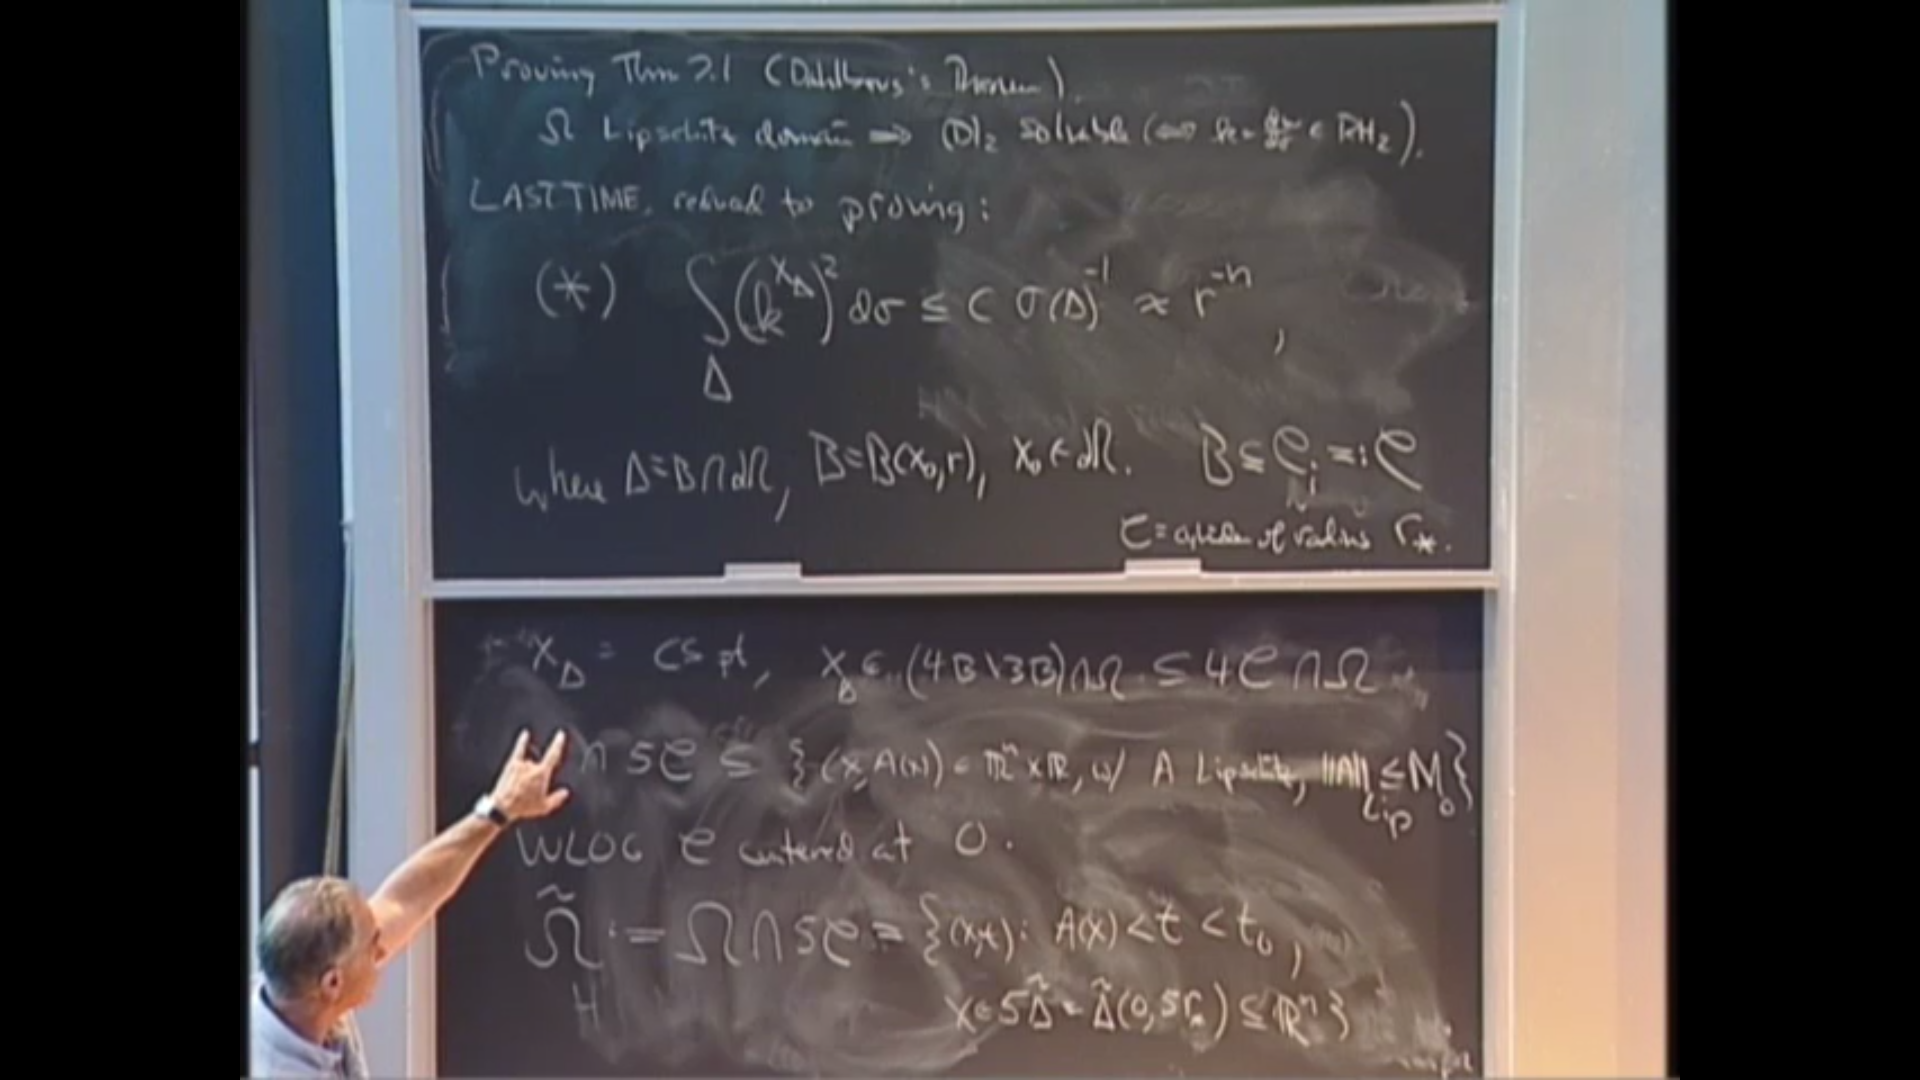 Proving Thm 2.1 (Dahlberg's Theorem).
Ω Lipschitz domain ⇒ (D)₂ solvable (⇔ k = dω/dσ ∈ RH₂).
LAST TIME, reduced to proving:
(*) ∫_Δ (k^{X_Δ})² dσ ≤ C σ(Δ)^{-1} ≈ r^{-n},
where Δ = B∩∂Ω, B = B(x₀,r), x₀ ∈ ∂Ω. B ⊆ 𝒞_i =: 𝒞
𝒞 = cylinder of radius r_*.
X_Δ = CS pt, X_Δ ∈ (4B\3B)∩Ω ⊆ 4𝒞∩Ω,
∩ 5𝒞 ⊆ {(x,A(x)) ∈ ℝⁿ×ℝ, w/ A Lipschitz, ||A||_Lip ≤ M₀}
WLOG 𝒞 centered at 0.
Ω̃ := Ω∩5𝒞 = {(x,t): A(x) < t < t₀,
x ∈ 5Δ̃ = Δ̃(0,5r_*) ⊆ ℝⁿ}